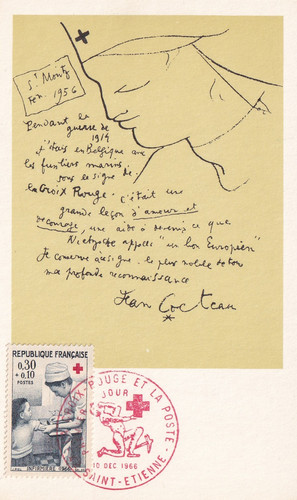 St Moritz
Fév. 1956
Pendant la
guerre de
1914
j'étais en Belgique avec
les fusiliers marins,
sous le signe de
la Croix Rouge. C'était une
grande leçon d'amour et
de courage, une aide à devenir ce que
Nietzsche appelle "un bon Européen"
Je conserve à ce signe le plus noble de tous
ma profonde reconnaissance
Jean Cocteau
*
REPUBLIQUE FRANÇAISE
0,30
+0,10
POSTES
INFIRMIERE 1966
CROIX-ROUGE ET LA POSTE
JOUR
10 DEC 1966
SAINT-ETIENNE